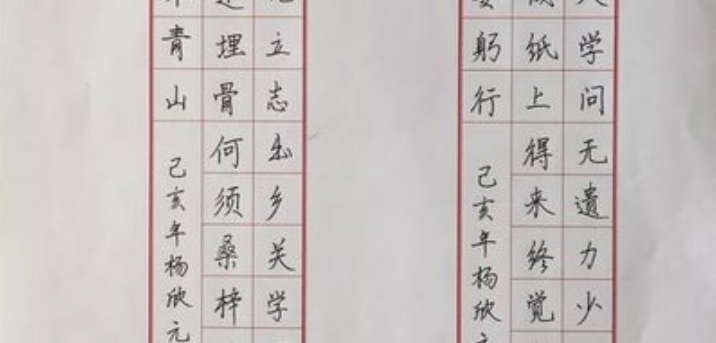 学问无遺力少
纸上得来终觉
躬行
己亥年杨欣元
立志出乡关学
埋骨何须桑梓
青山
己亥年杨欣元